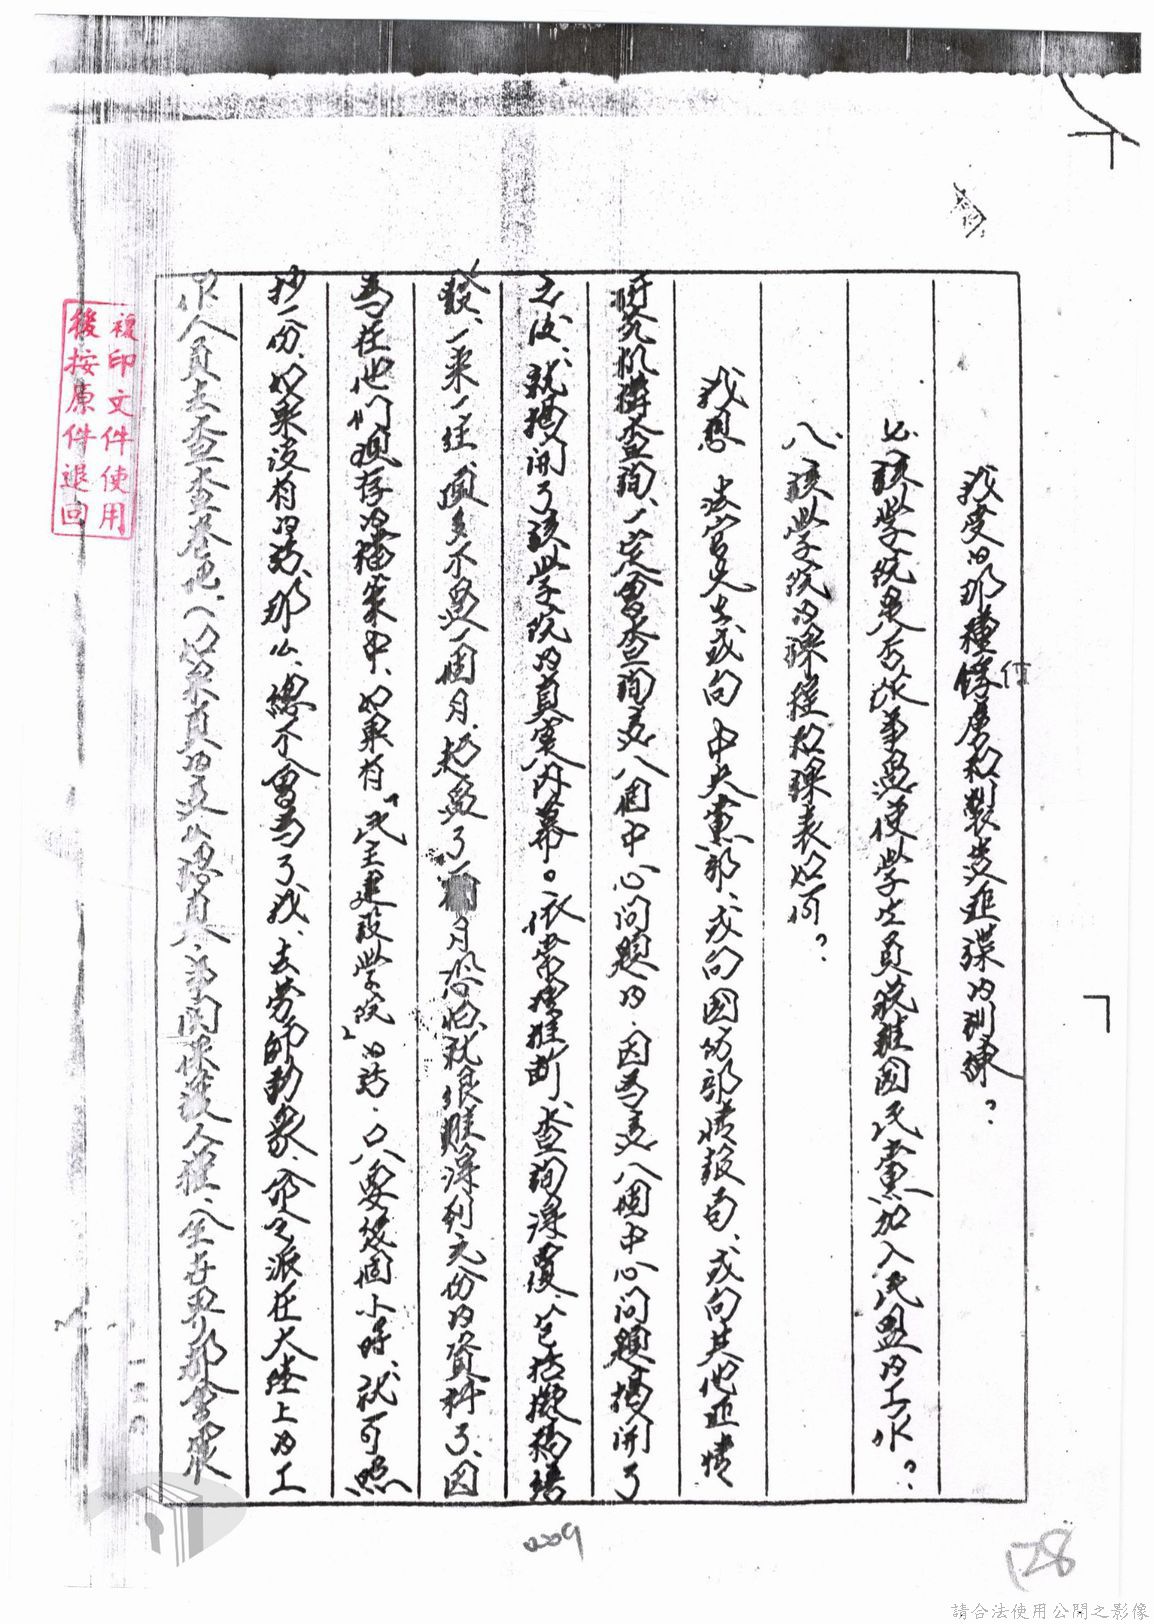 我受的那種俘虜和製造匪諜的訓練？
七、該學院是否從事過使學生員脫離國民黨加入民盟的工作？
八、該學院的課程和課表如何？
我想 法官先生或向中央黨部、或向國防部情報局、或向其他匪情
研究机構查詢、一定會查詢這八個中心問題的．因為這八個中心問題揭開了
之後、就揭開了該學院的真實內幕。依常情推斷、查詢得覆、包括擬稿繕
發、一來一往、頂多不過一個月．超過了一個月恐怕就很難得到充份的資料了、因
為在他們現存的檔案中、如果有「民主建設學院」的話．只要幾個小時、就可照
抄一份．如果沒有的話、那么、總不會為了我、去勞師動衆、命令派在大陸上的工
作人員去查查卷吧、如果真的這么認真、
複印文件使用
後按原件退回
009
128
請合法使用公開之影像